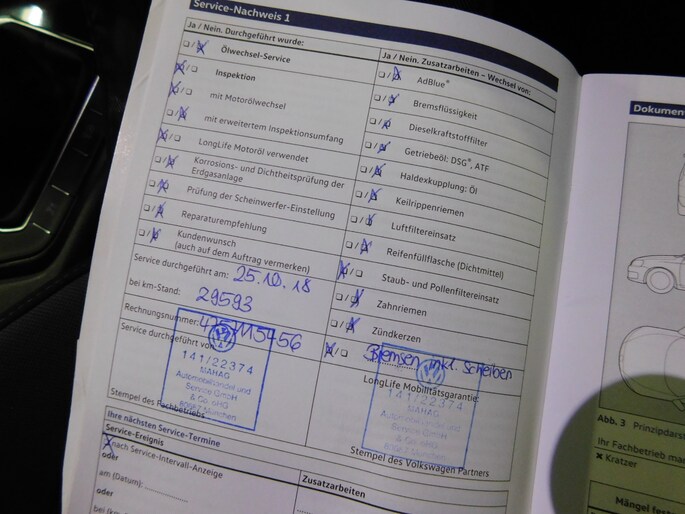 Service-Nachweis 1
Ja / Nein. Durchgeführt wurde:
Ölwechsel-Service
Inspektion
mit Motorölwechsel
mit erweitertem Inspektionsumfang
LongLife Motoröl verwendet
Korrosions- und Dichtheitsprüfung der
Erdgasanlage
Prüfung der Scheinwerfer-Einstellung
Reparaturempfehlung
Kundenwunsch
(auch auf dem Auftrag vermerken)
Service durchgeführt am: 25.10.18
bei km-Stand: 29593
Rechnungsnummer:
Service durchgeführt von
141/22374
MAHAG
Automobilhandel und
Service GmbH
& Co. oHG
München
Stempel des Fachbetriebs
Ja / Nein. Zusatzarbeiten – Wechsel von:
AdBlue®
Bremsflüssigkeit
Dieselkraftstofffilter
Getriebeöl: DSG®, ATF
Haldexkupplung: Öl
Keilrippenriemen
Luftfiltereinsatz
Reifenfüllflasche (Dichtmittel)
Staub- und Pollenfiltereinsatz
Zahnriemen
Zündkerzen
Bremsen inkl. Scheiben
LongLife Mobilitätsgarantie:
141/22374
MAHAG
Automobilhandel und
Service GmbH
& Co. oHG
München
Stempel des Volkswagen Partners
Ihre nächsten Service-Termine
Service-Ereignis
Zusatzarbeiten
nach Service-Intervall-Anzeige
oder
am (Datum):
oder
Dokument
Abb. 3 Prinzipdarst
Ihr Fachbetrieb ma
× Kratzer
Mängel fest